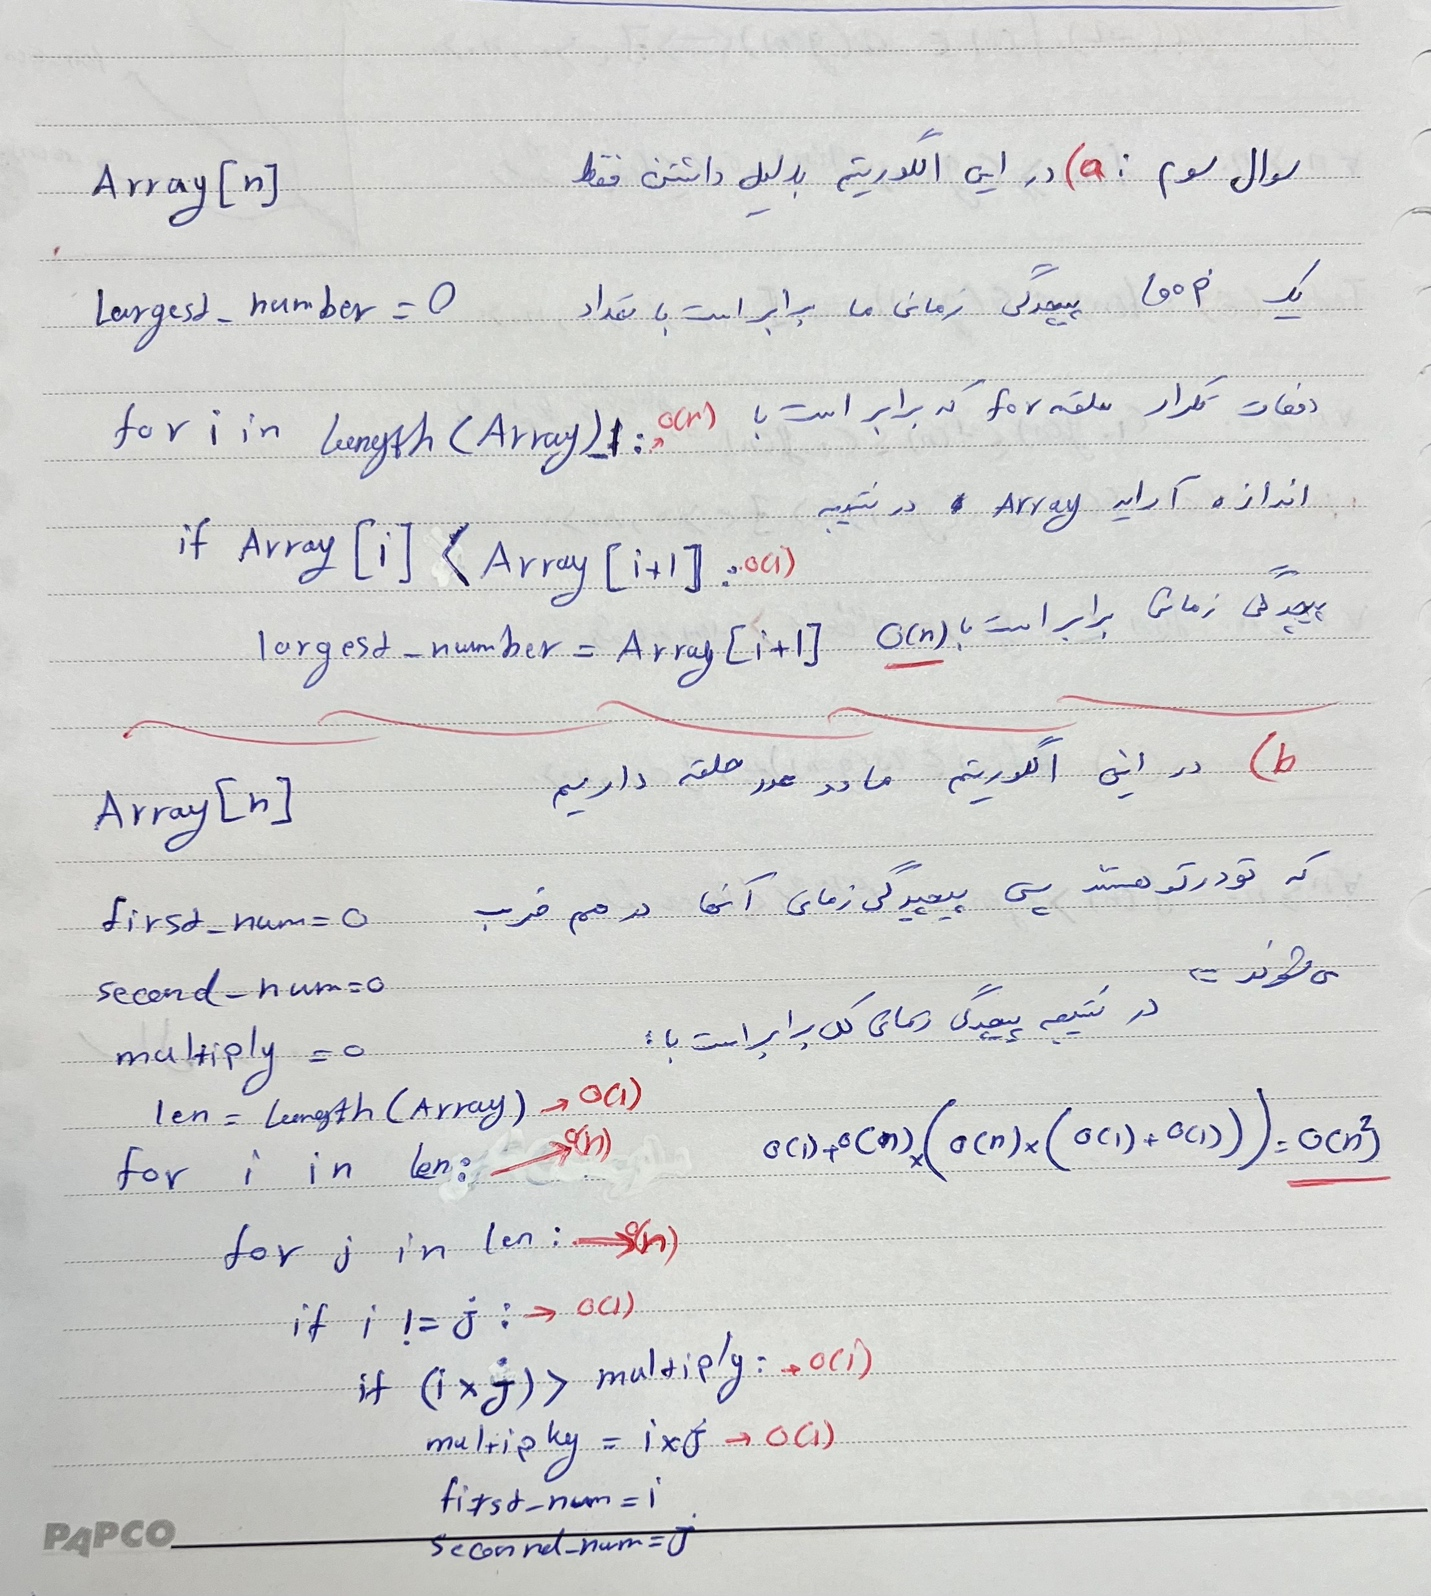 سوال سوم : a) در این الگوریتم بدلیل داشتن فقط
یک loop پیچیدگی زمانی ما برابر است با تعداد
دفعات تکرار حلقه for که برابر است با
اندازه آرایه Array در نتیجه
پیچیدگی زمانی برابر است با O(n)
Array[n]
largest_number = 0
for i in length(Array)-1: → O(n)
if Array[i] < Array[i+1] : O(1)
largest_number = Array[i+1]
b) در این الگوریتم ما دو عدد حلقه داریم
که تودرتو هستند پس پیچیدگی زمانی آنها در هم ضرب
می شوند ⇐
در نتیجه پیچیدگی زمانی کل برابر است با :
O(1)+O(n)×(O(n)×(O(1)+O(1)))=O(n²)
Array[n]
first_num=0
second_num=0
multiply = 0
len = length(Array) → O(1)
for i in len: → O(n)
for j in len : → O(n)
if i != j : → O(1)
if (i×j)> multiply: → O(1)
multiply = i×j → O(1)
first_num=i
seconnd_num=j
PAPCO